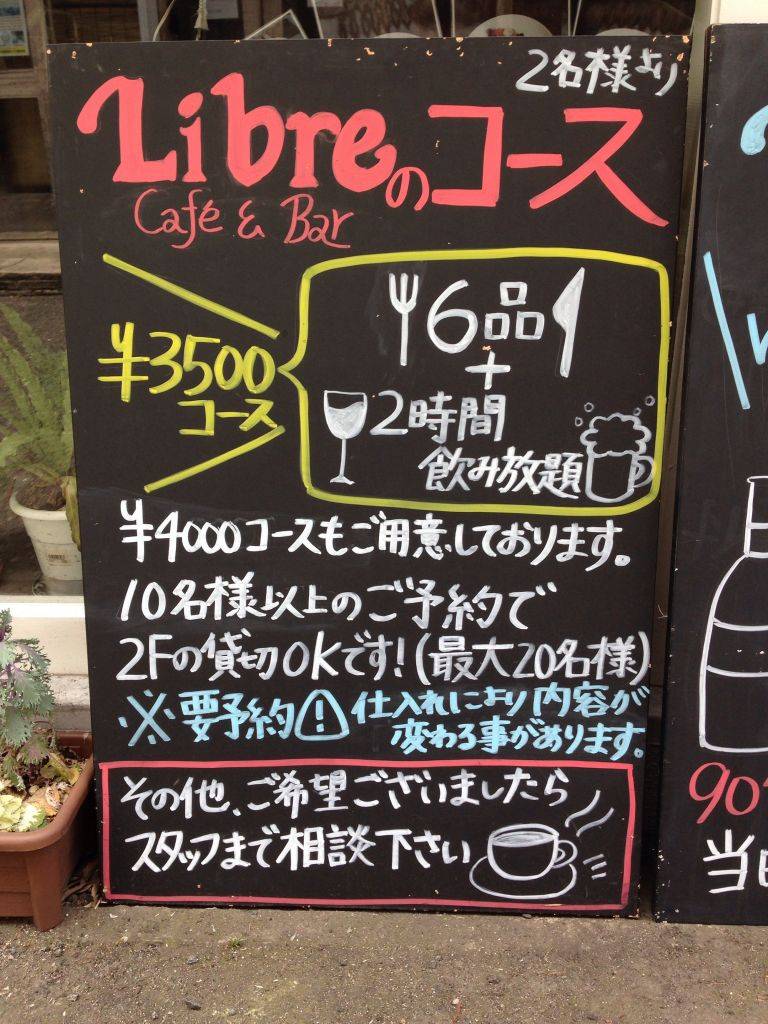 2名様より
Libreのコース
Café & Bar
¥3500
コース
6品
+
2時間
飲み放題
¥4000コースもご用意しております。
10名様以上のご予約で
2Fの貸切OKです!(最大20名様)
※要予約⚠仕入れにより内容が
変わる事があります。
その他、ご希望ございましたら
スタッフまで相談下さい
90
当